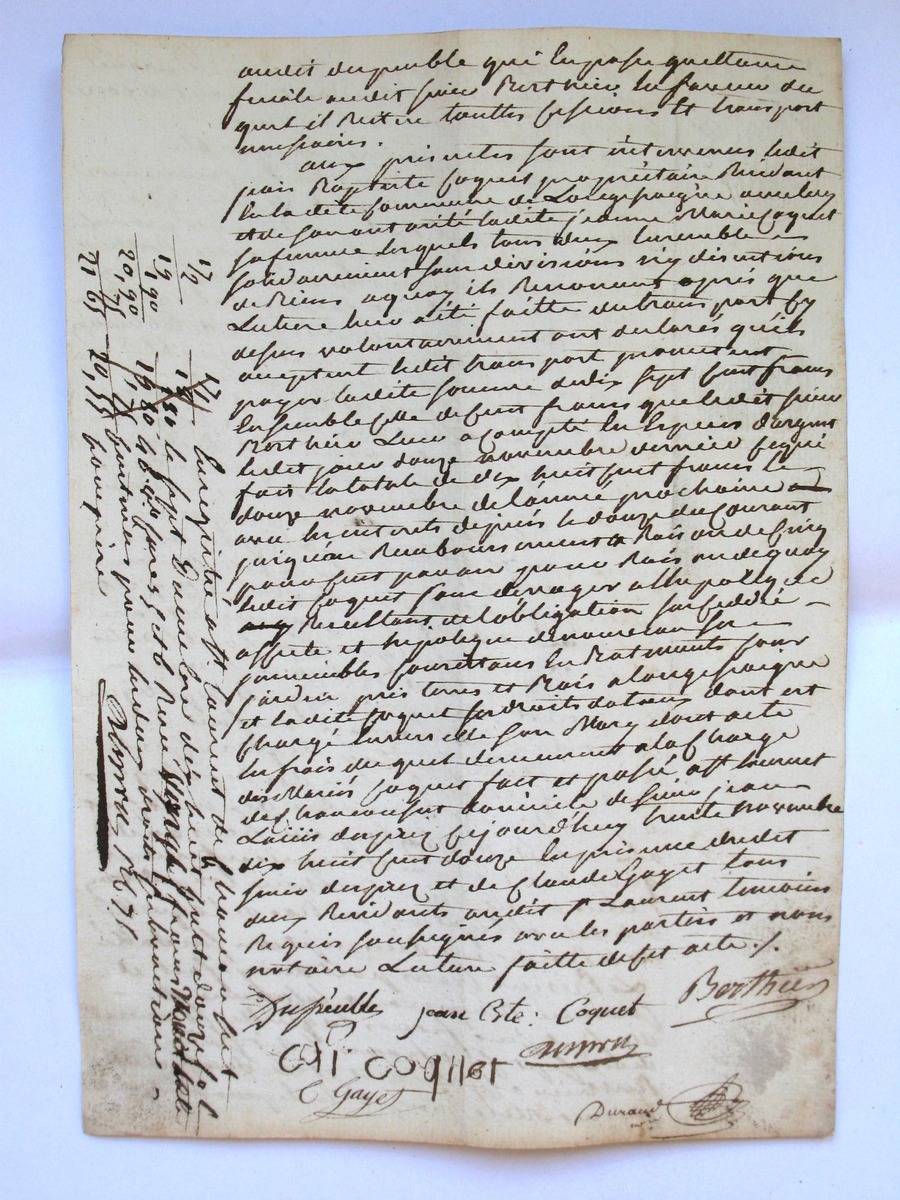 audit dupeuble que luy passe quittance
finale audit sieur Berthier en faveur du
quel il Reitere touttes cessions et transport
necessaires.
aux presentes sont intervenus ledit
jean Baptiste Coquet propriétaire Residant
en la dite commune de Longepaigne avec luy
et de son autorité ladite jeanne Marie Coquet
sa femme lesquels tous deux ensemble
solidairement sans divisions ny discutions
de Biens aquoy ils Renoncent aprés que
Lecture leur a été faitte du transport cy
dessus volontairement ont declarés qu'ils
acceptent ledit transport promettent
payer ladite somme de dix sept cent francs
Ensemble celle de cent francs que ledit sieur
Berthier Leur a compté en Especes d'argent
ledit jour douze novembre dernier ce qui
fait la totale de dix huit cent francs le
douze novembre de l'année prochaine
avec les interets depuis le douze du Courant
jusqu'au Remboursement a Raison de Cinq
pour cent par an pour Raison de quoy
ledit Coquet sans deroger a l'hypoteque
Resultant de l'obligation susdattée
affecte et hypoteque de nouveau ses
immeubles consistans En Batiments cour
jardin prés terres et Bois a longepaigne
et ladite Coquet ses droits dotaux dont est
chargé envers elle son Mary dont acte
les frais du quel demeurent a la charge
des Mariés Coquet fait et passé a St Laurent
de chamousset domicile de sieur jean
Louis dupuy cejourd'huy trente novembre
dix huit cent douze En presence dudit
sieur dupuy et de Claude Gayet tous
deux Residants audit St Laurent temoins
Requis soussignés avec les parties et nous
notaire Lecture faitte du pnt acte ./.
Dupeuble jean Bte: Coquet Berthier
Coquet
C Gayet
Durand
17
12
19
1,90
20,90
21 65
17
1 80
20,55
Enregistré a St Laurent de chamousset
le sept Decembre dix huit cent douze fol
48 v° Cases 5 et 6 Recu
centimes pour